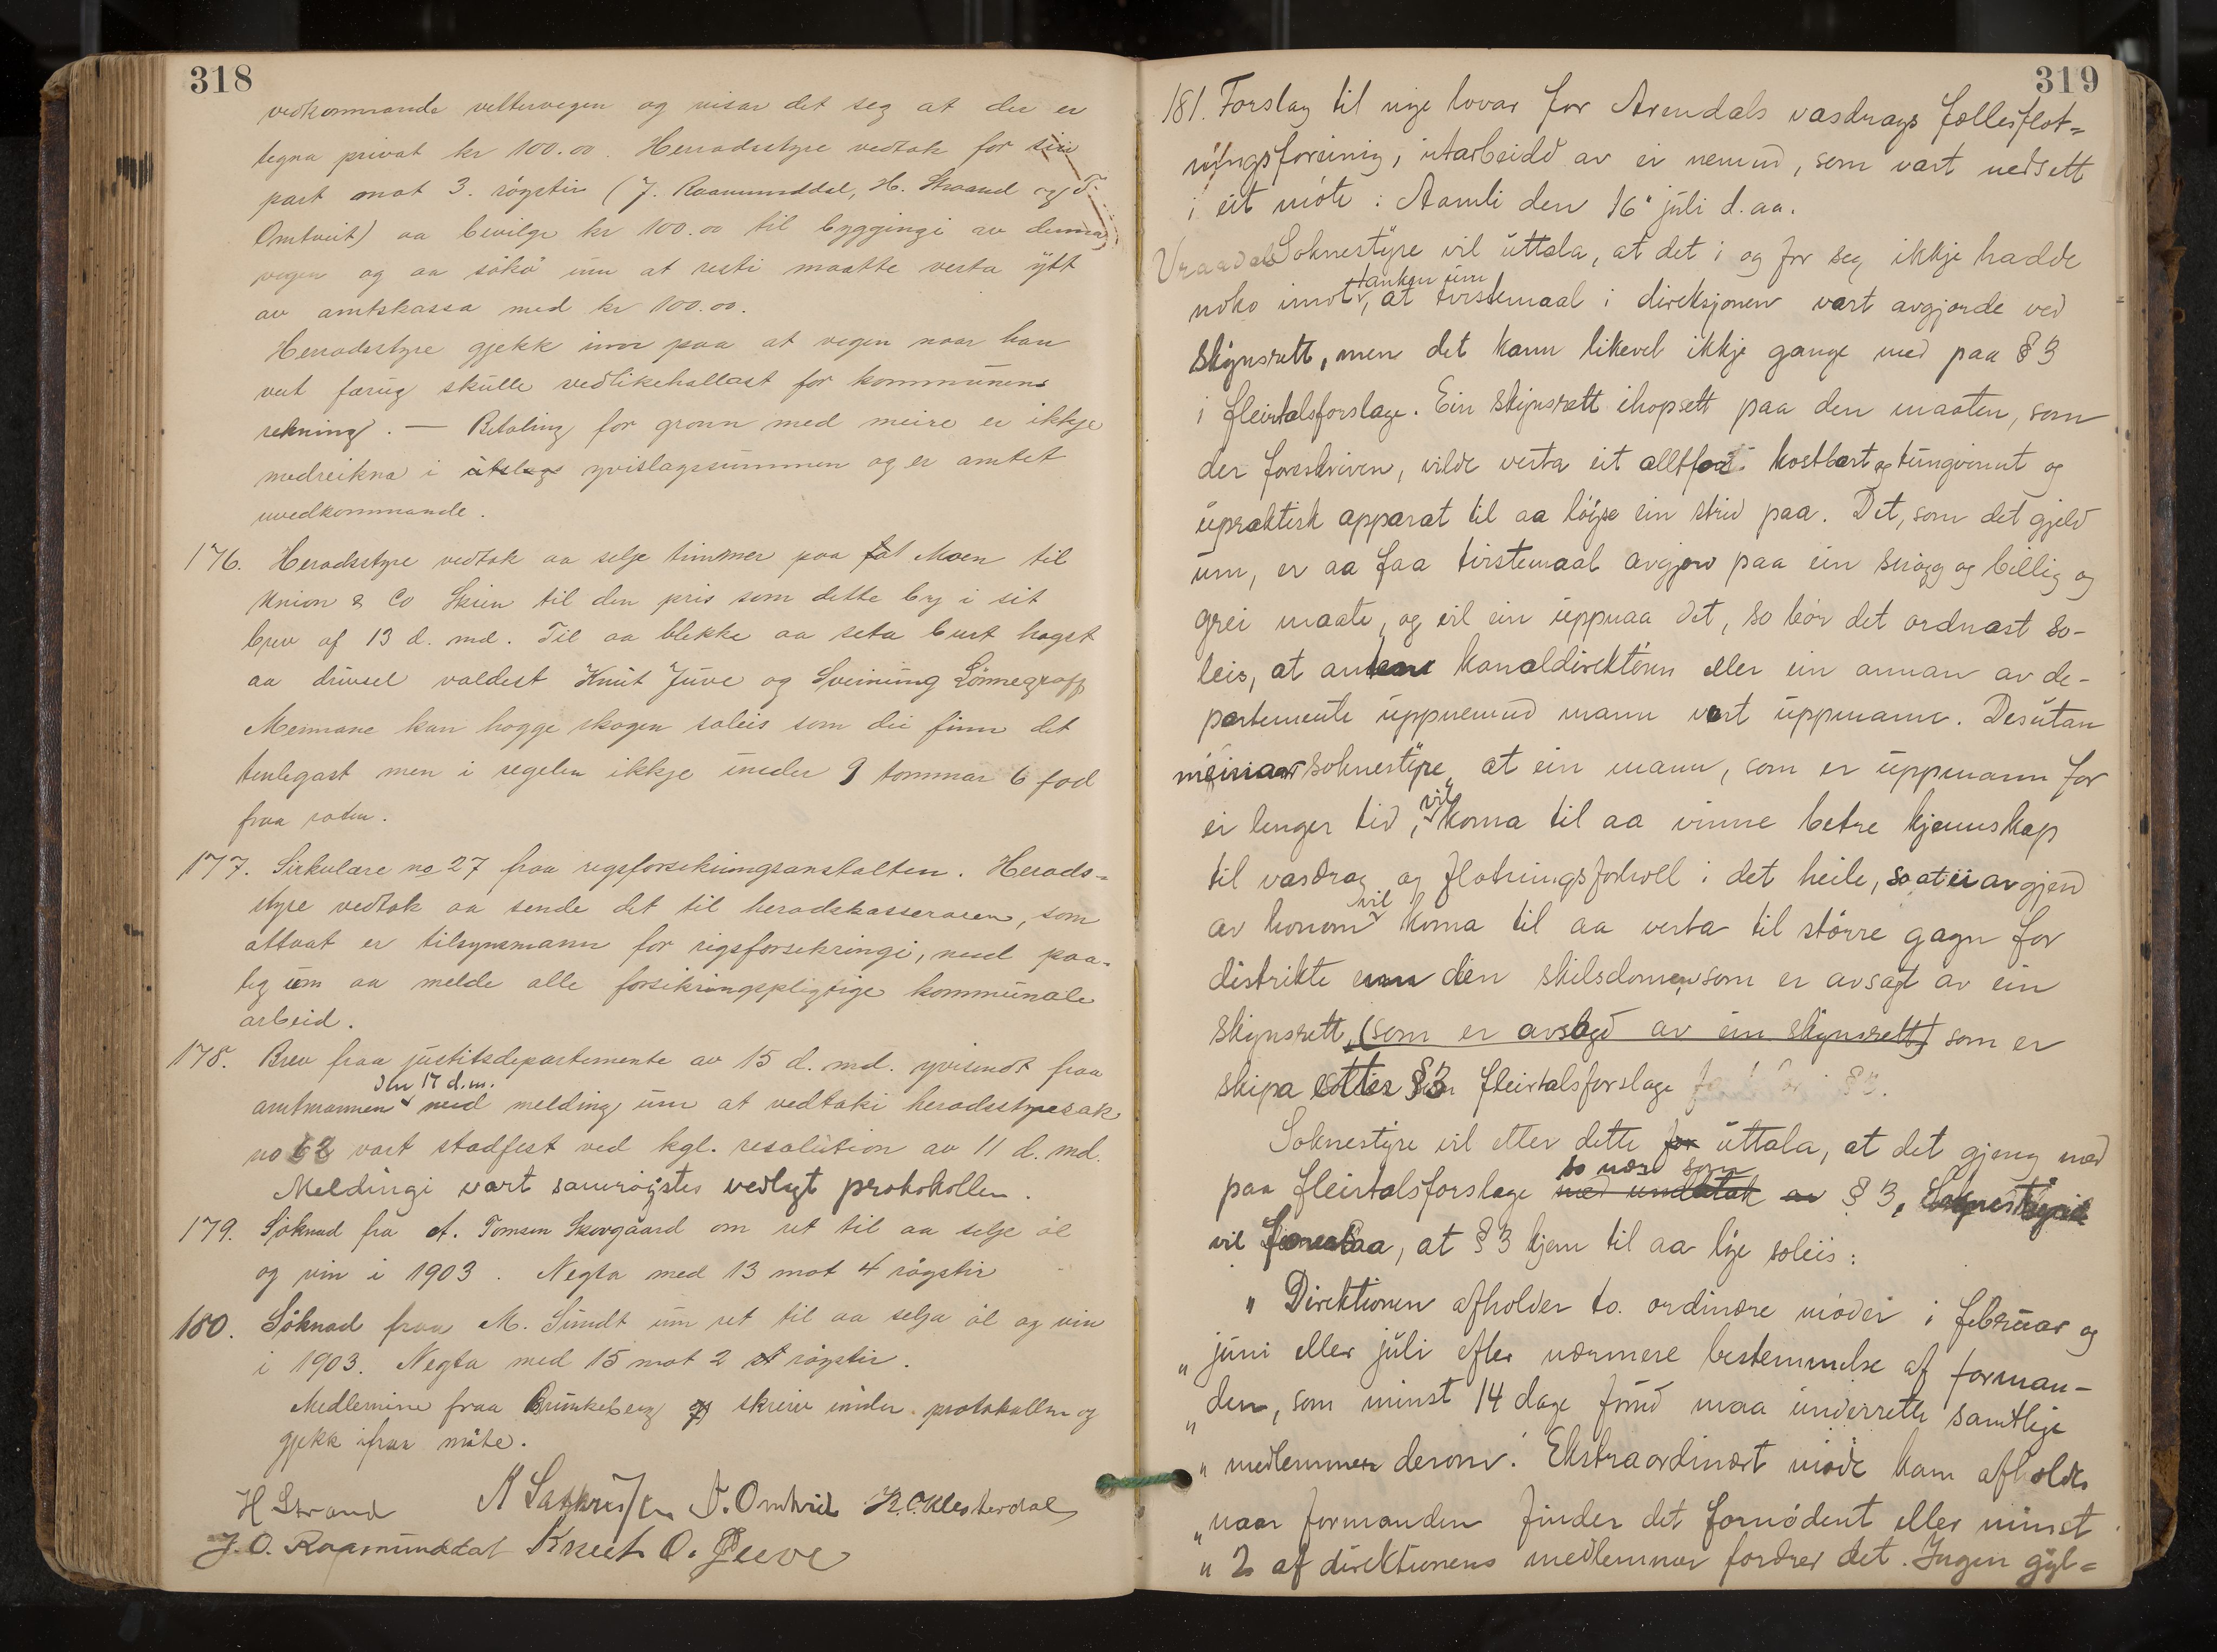 318
vedkommande veltervegen og visar det seg at der er
tegna privat kr 100.00. Herradsstyre vedtok for sin
part mot 3. röystir (J. Raamunddal, H. Straand og T.
Omtveit) aa bevilge kr 100.00 til byggjingi av denna
vegen og aa sökö um at resti maatte verta ytt
av amtskassa med kr 100.00.
Herradsstyre gjekk inn paa at vegen naar han
vert færug skulle vedlikehallast for kommunens
rekning. — Betaling for gronn med meire er ikkje
medreikna i utslags yvislagssummen og er amtet
uvedkommande.
176. Heradsstyre vedtok aa selje timmer paa Moen til
Union & Co Skien til den pris som dette by i sit
brev af 13 d. md. Til aa blekke aa seta burt hogst
aa drivsel valdest Knut Juve og Sveinung Lönnegraff
Mennane kan hogge skogen soleis som dei finn det
tenlegast men i regelen ikkje under 9 tommar 6 fod
fraa roten.
177. Sirkulære no 27 fraa rigsforsekringsanstalten. Herads-
styre vedtok aa sende det til heradskasseraren, som
attvat er tilsynsmann for rigsforsekringi, med paa-
leg um aa melde alle forsikringspligtige kommunale
arbeid.
178. Brev fraa justitsdepartemente av 15 d. md. yvisendt fraa
amtmannen den 17 d.m. med melding um at vedtaki heradsstyresak
no 62 vart stadfest ved kgl. resolution av 11 d. md.
Meldingi vart samröystes vedlagt protokollen.
179. Söknad fra A. Tomsen Skovgaard om ret til aa selje öl
og vin i 1903. Negta med 13 mot 4 röystir
180. Söknad fraa M. Sundt um ret til aa selja öl og vin
i 1903. Negta med 15 mot 2 röystir.
Medlemine fraa Brunkeberg skreiv under protokollen og
gjekk ifraa möte.
H Strand T. Omtveit K. O. Klesterdal
J. O. Raamunddal Knut O. Juve
319
181. Forslag til nye lovar for Arendals vasdrags fællesflot-
ningsforeining, utarbeidd av ei nemnd, som vart nedsett
i eit möte i Aamli den 16" juli d. aa.
Vraadal Soknestyre vil uttala, at det i og for seg ikkje hadde
noko imot tanken um, at tvistemaal i direksjonen vart avgjorde ved
skjynsrett, men det kann likevel ikkje gange med paa § 3
i fleirtalsforslage. Ein skjynsrett ihopsett paa den maaten, som
der foreskriven, vilde verta eit alltfor kostbart og tungvinnt og
upraktisk apparat til aa löyse ein strid paa. Det, som det gjeld
um, er aa faa tvistemaal avgjord paa ein snögg og billig og
grei maate, og vil ein uppnaa det, so bör det ordnast so-
leis, at anten kanaldirektören eller ein annan av de-
partemente uppnemnd mann vert uppmann. Desutan
meinar soknestyre, at ein mann, som er uppmann for
ei lenger tid, vil koma til aa vinne betre kjennskap
til vasdrag og flotningsforholl i det heile, so at ei avgjerd
av honom vil koma til aa verta til större gagn for
distrikte enn den skilsdomen, som er avsagt av ein
skjynsrett, (som er avsagd av ein skjynsrett) som er
skipa etter § 3 i fleirtalsforslage
Soknestyre vil etter dette for uttala, at det gjeng med
paa fleirtalsforslage med undatak av so nær som § 3, Soknestyre
vil foreslaa, at § 3 kjem til aa lye soleis:
" Direktionen afholder to ordinære möder i februar og
" juni eller juli efter nærmere bestemmelse af forman-
" den, som minst 14 dage forud maa underrette samtlige
" medlemmer derom. Ekstraordinært möde kan afholdes
" naar formanden finder det fornödent eller minst
" 2 af direktionens medlemmer fordrer det. Ingen gyl-